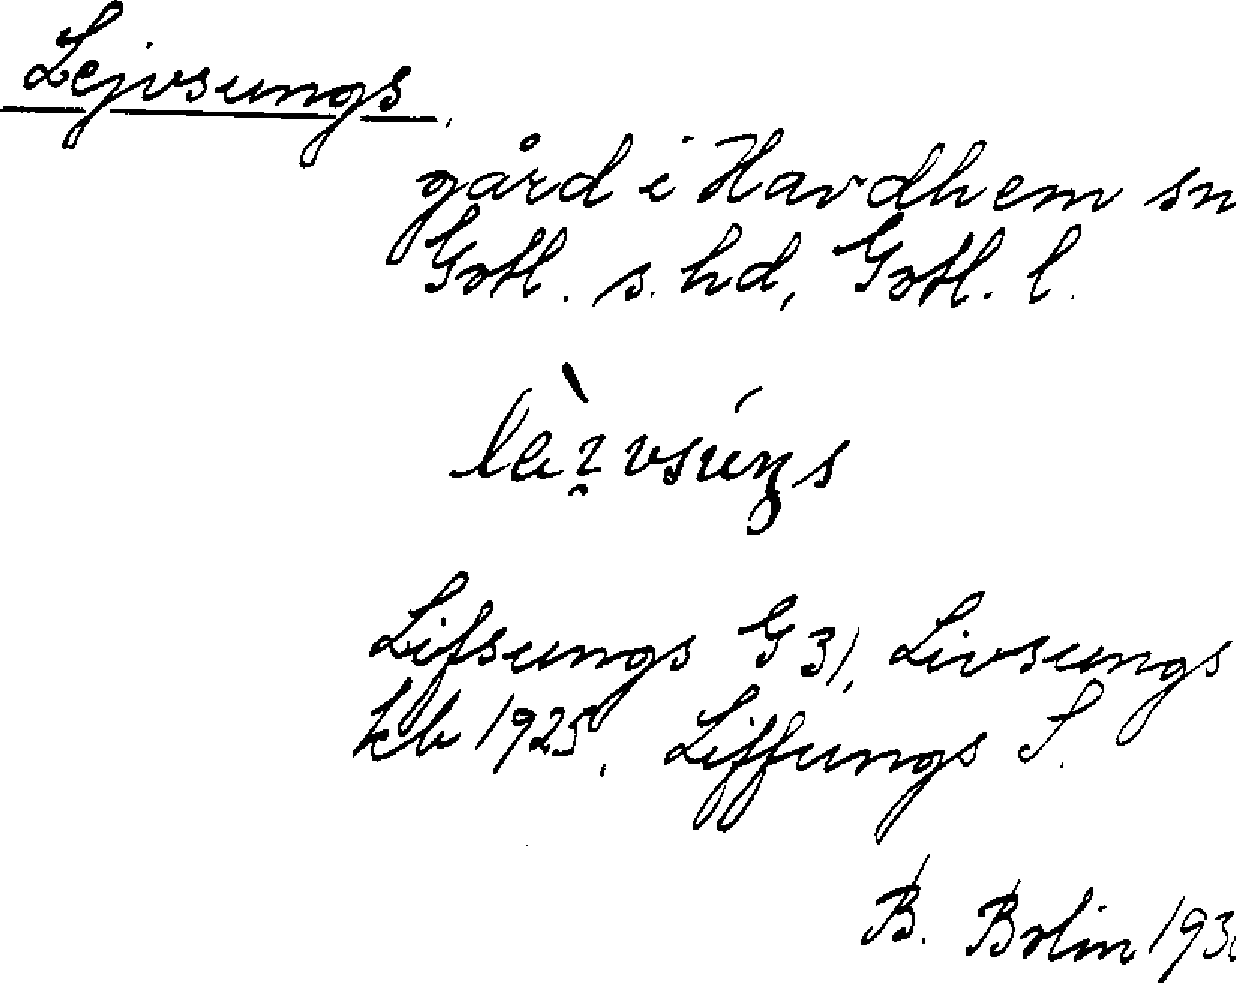 Lejvsungs.
gård i Havdhem sn
Gotl. s. hd, Gotl. l.
Lifsungs G 31, Livsungs
kb 1925, Liffungs S.
B. Bolin